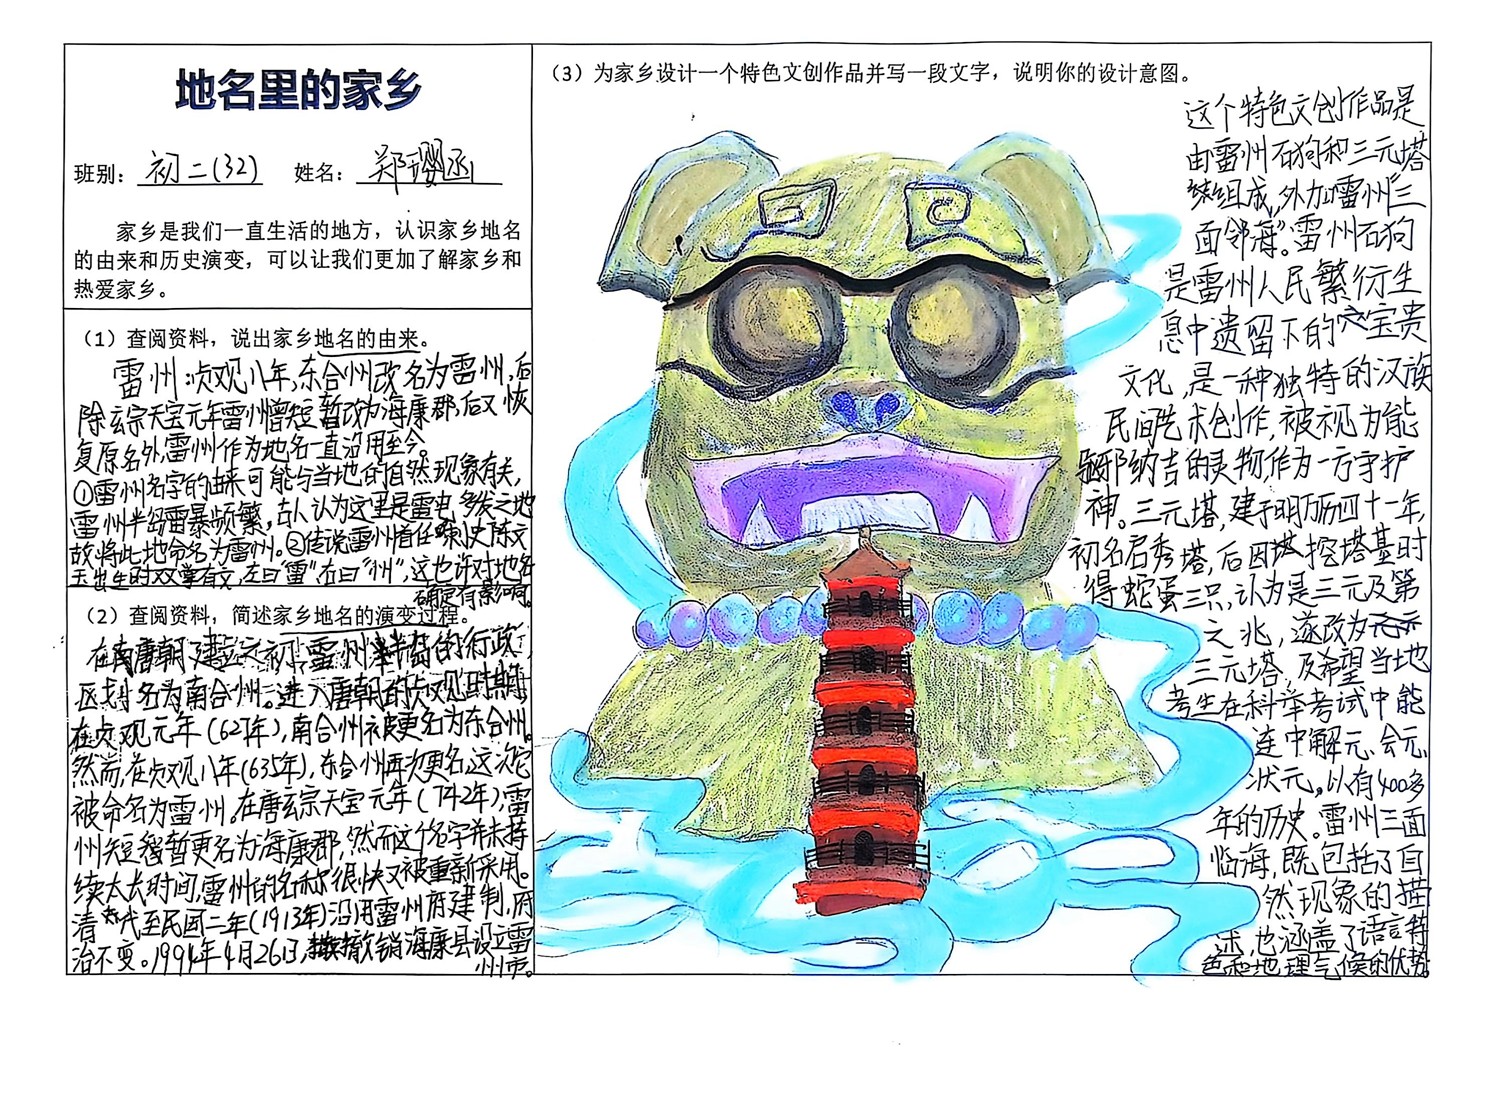 地名里的家乡
班别：初二(32) 姓名：郑璎函
家乡是我们一直生活的地方，认识家乡地名
的由来和历史演变，可以让我们更加了解家乡和
热爱家乡。
（1）查阅资料，说出家乡地名的由来。
雷州：贞观八年，东合州改名为雷州，后
除玄宗天宝元年雷州曾短暂改为海康郡，后又恢
复原名外，雷州作为地名一直沿用至今。
①雷州名字的由来可能与当地的自然现象有关，
雷州半岛雷暴频繁，古人认为这里是雷电多发之地
故将此地命名为雷州。②传说雷州首任刺史陈文
玉出生时双掌有文，左曰"雷"右曰"州"，这也许对地名
确定有影响。
（2）查阅资料，简述家乡地名的演变过程。
在唐朝建立之初，雷州半岛的行政
区划名为南合州。进入唐朝的贞观时期，
在贞观元年(627年)，南合州被更名为东合州。
然而，在贞观八年(635年)，东合州再次更名，这次它
被命名为雷州。在唐玄宗天宝元年(742年)，雷
州短暂更名为海康郡，然而这个名字并未持
续太长时间，雷州的名称很快又被重新采用。
清代至民国二年(1913年)沿用雷州府建制，府
治不变。1994年4月26日，撤销海康县设立雷
州市。
（3）为家乡设计一个特色文创作品并写一段文字，说明你的设计意图。
这个特色文创作品是
由雷州石狗和三元塔
组成，外加雷州"三
面邻海"。雷州石狗
是雷州人民繁衍生
息中遗留下的宝贵
文化，是一种独特的汉族
民间艺术创作，被视为能
驱邪纳吉的灵物，作为一方守护
神。三元塔，建于明万历四十一年，
初名启秀塔，后因挖塔基时
得蛇蛋三只，认为是三元及第
之兆，遂改为
三元塔，及希望当地
考生在科举考试中能
连中解元、会元、
状元，以有400多
年的历史。雷州三面
临海，既包括了自
然现象的描
述，也涵盖了语言特
色和地理气候的优势